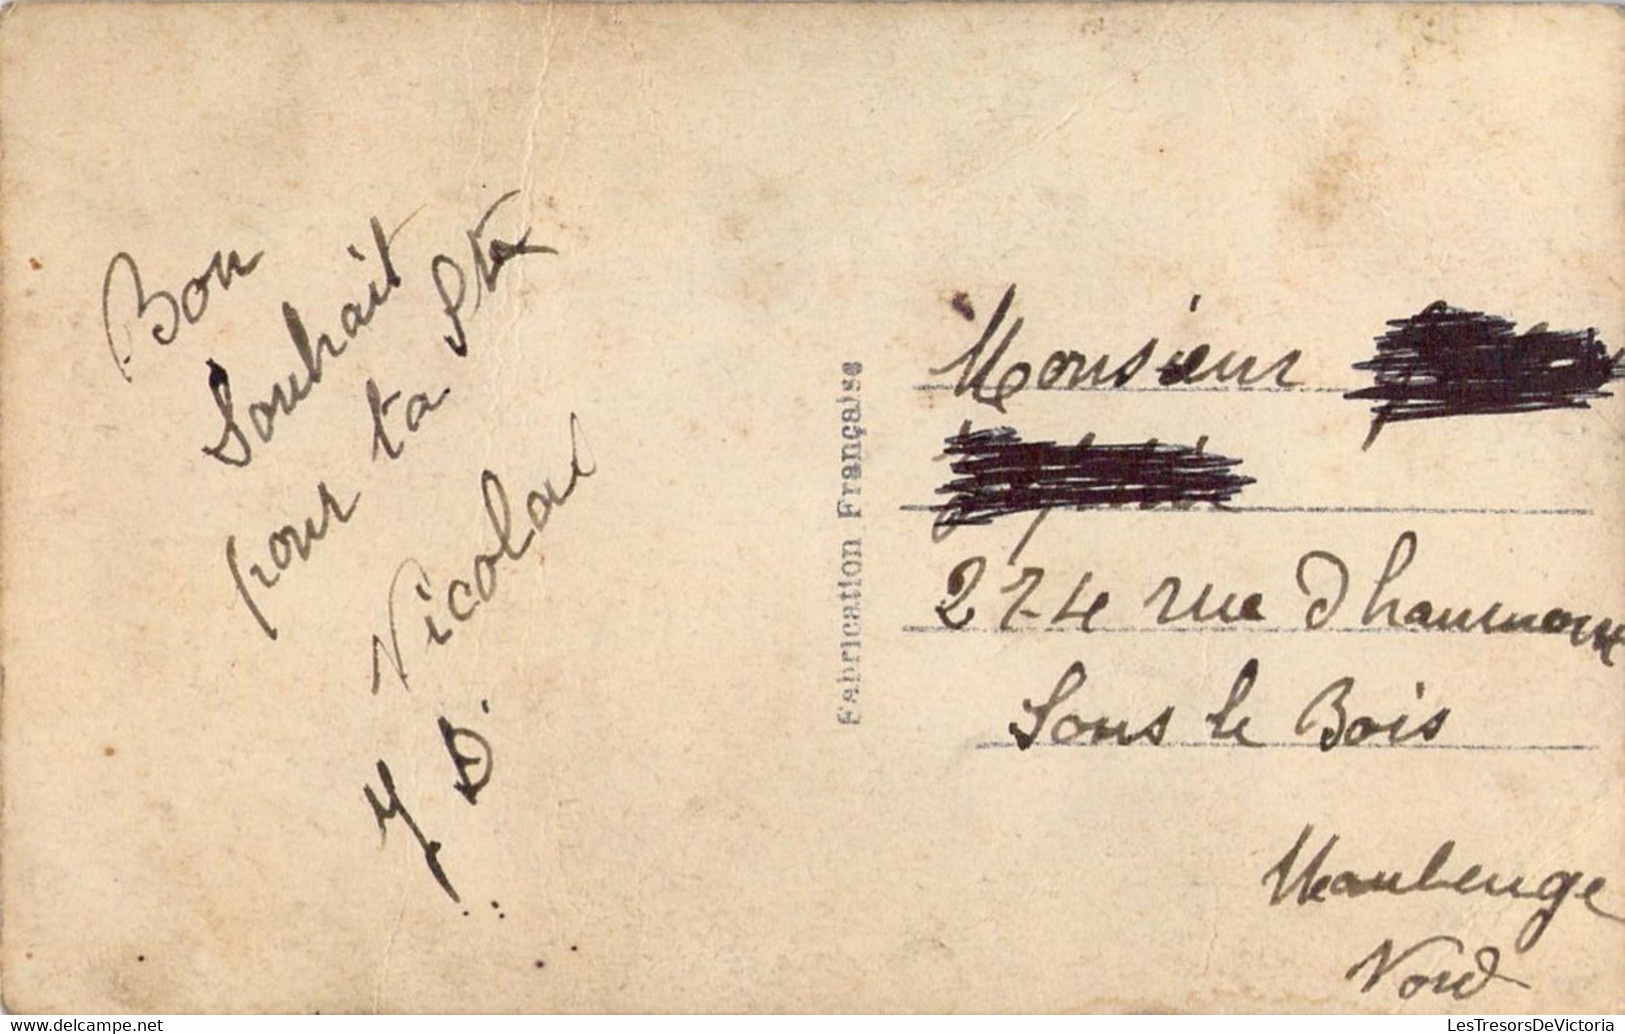 Bon
Souhait
pour ta St
Nicolas
Y D.
Fabrication Française
Monsieur
274 rue D haumont
Sous le Bois
Maubeuge
Nord
LesTresorsDeVictoria